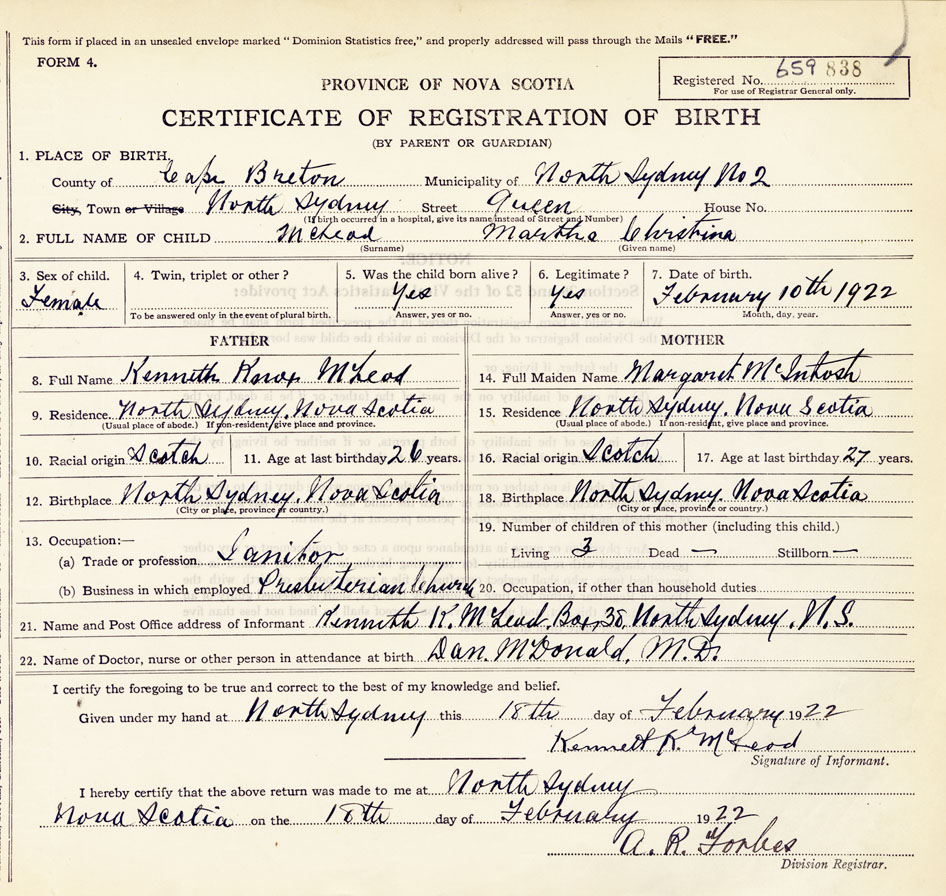 This form if placed in an unsealed envelope marked "Dominion Statistics free," and properly addressed will pass through the Mails "FREE."
FORM 4.
Registered No. 659 838
For use of Registrar General only.
PROVINCE OF NOVA SCOTIA
CERTIFICATE OF REGISTRATION OF BIRTH
(BY PARENT OR GUARDIAN)
1. PLACE OF BIRTH.
County of Cape Breton Municipality of North Sydney No 2
City, Town or Village North Sydney Street Queen House No.
(If birth occurred in a hospital, give its name instead of Street and Number)
2. FULL NAME OF CHILD McLeod Martha Christina
(Surname) (Given name)
3. Sex of child. 4. Twin, triplet or other? 5. Was the child born alive? 6. Legitimate? 7. Date of birth.
Female Yes Yes February 10th 1922
To be answered only in the event of plural birth. Answer, yes or no. Answer, yes or no. Month, day, year.
FATHER
8. Full Name Kenneth Knox McLeod
9. Residence North Sydney, Nova Scotia
(Usual place of abode.) If non-resident, give place and province.
10. Racial origin Scotch 11. Age at last birthday 26 years.
12. Birthplace North Sydney, Nova Scotia
(City or place, province or country.)
13. Occupation:—
(a) Trade or profession Janitor
(b) Business in which employed Presbyterian Church
MOTHER
14. Full Maiden Name Margaret McIntosh
15. Residence North Sydney, Nova Scotia
(Usual place of abode.) If non-resident, give place and province.
16. Racial origin Scotch 17. Age at last birthday 27 years.
18. Birthplace North Sydney, Nova Scotia
(City or place, province or country.)
19. Number of children of this mother (including this child.)
Living 3 Dead — Stillborn —
20. Occupation, if other than household duties
21. Name and Post Office address of Informant Kenneth K. McLeod, Box 38, North Sydney, N.S.
22. Name of Doctor, nurse or other person in attendance at birth Dan. McDonald, M.D.
I certify the foregoing to be true and correct to the best of my knowledge and belief.
Given under my hand at North Sydney this 18th day of February 1922
Kenneth K. McLeod
Signature of Informant.
I hereby certify that the above return was made to me at North Sydney
Nova Scotia on the 18th day of February 1922
A. R. Forbes
Division Registrar.